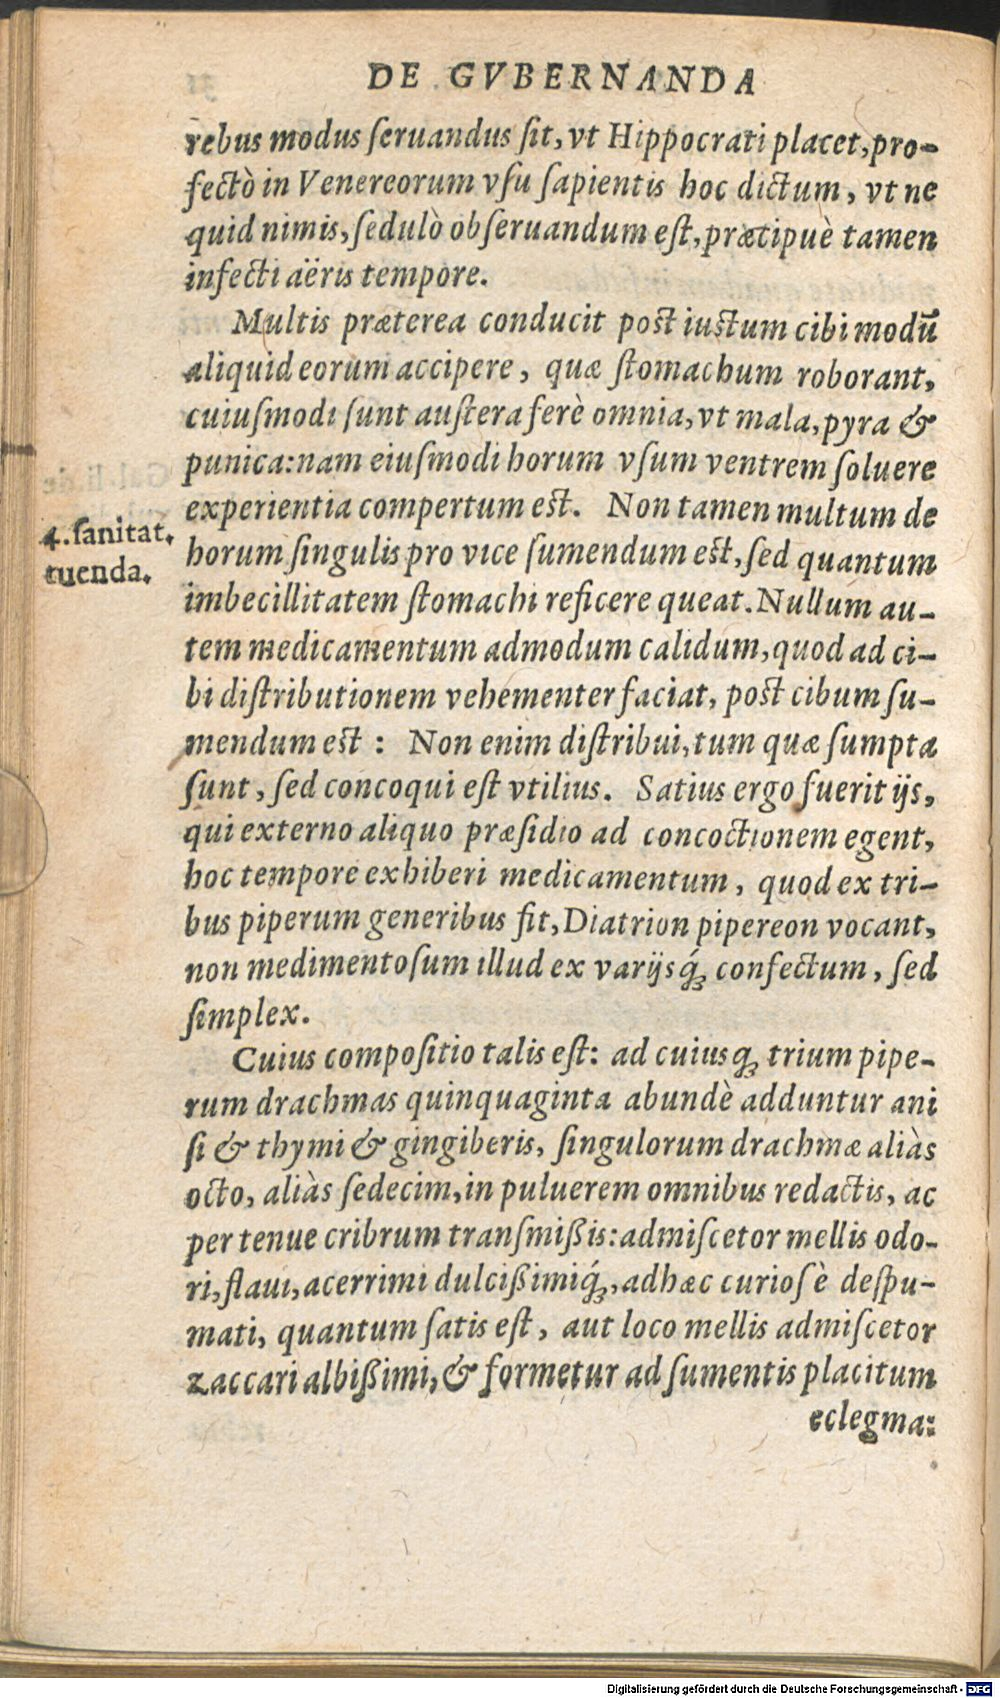 DE GVBERNANDA
rebus modus ſeruandus ſit, vt Hippocrati placet, pro-
fectò in Venereorum vſu ſapientis hoc dictum, vt ne
quid nimis, ſedulò obſeruandum eſt, præcipuè tamen
infecti aëris tempore.
Multis præterea conducit poſt iuſtum cibi modū
aliquid eorum accipere, quæ ſtomachum roborant,
cuiuſmodi ſunt auſtera ferè omnia, vt mala, pyra &
punica: nam eiuſmodi horum vſum ventrem ſoluere
experientia compertum eſt. Non tamen multum de
4. ſanitat.
tuenda.
horum ſingulis pro vice ſumendum eſt, ſed quantum
imbecillitatem ſtomachi reficere queat. Nullum au-
tem medicamentum admodum calidum, quod ad ci-
bi diſtributionem vehementer faciat, poſt cibum ſu-
mendum eſt: Non enim diſtribui, tum quæ ſumpta
ſunt, ſed concoqui eſt vtilius. Satius ergo fuerit ijs,
qui externo aliquo præſidio ad concoctionem egent,
hoc tempore exhiberi medicamentum, quod ex tri-
bus piperum generibus fit, Diatrion pipereon vocant,
non medimentoſum illud ex varijsq́ꝫ confectum, ſed
ſimplex.
Cuius compoſitio talis eſt: ad cuiusqꝫ trium pipe-
rum drachmas quinquaginta abundè adduntur ani
ſi & thymi & gingiberis, ſingulorum drachmæ aliàs
octo, aliàs ſedecim, in puluerem omnibus redactis, ac
per tenue cribrum tranſmißis: admiſcetor mellis odo-
ri, flaui, acerrimi dulcißimiq́ꝫ, adhæc curioſè deſpu-
mati, quantum ſatis eſt, aut loco mellis admiſcetor
zaccari albißimi, & formetur ad ſumentis placitum
eclegma:
Digitalisierung gefördert durch die Deutsche Forschungsgemeinschaft - DFG